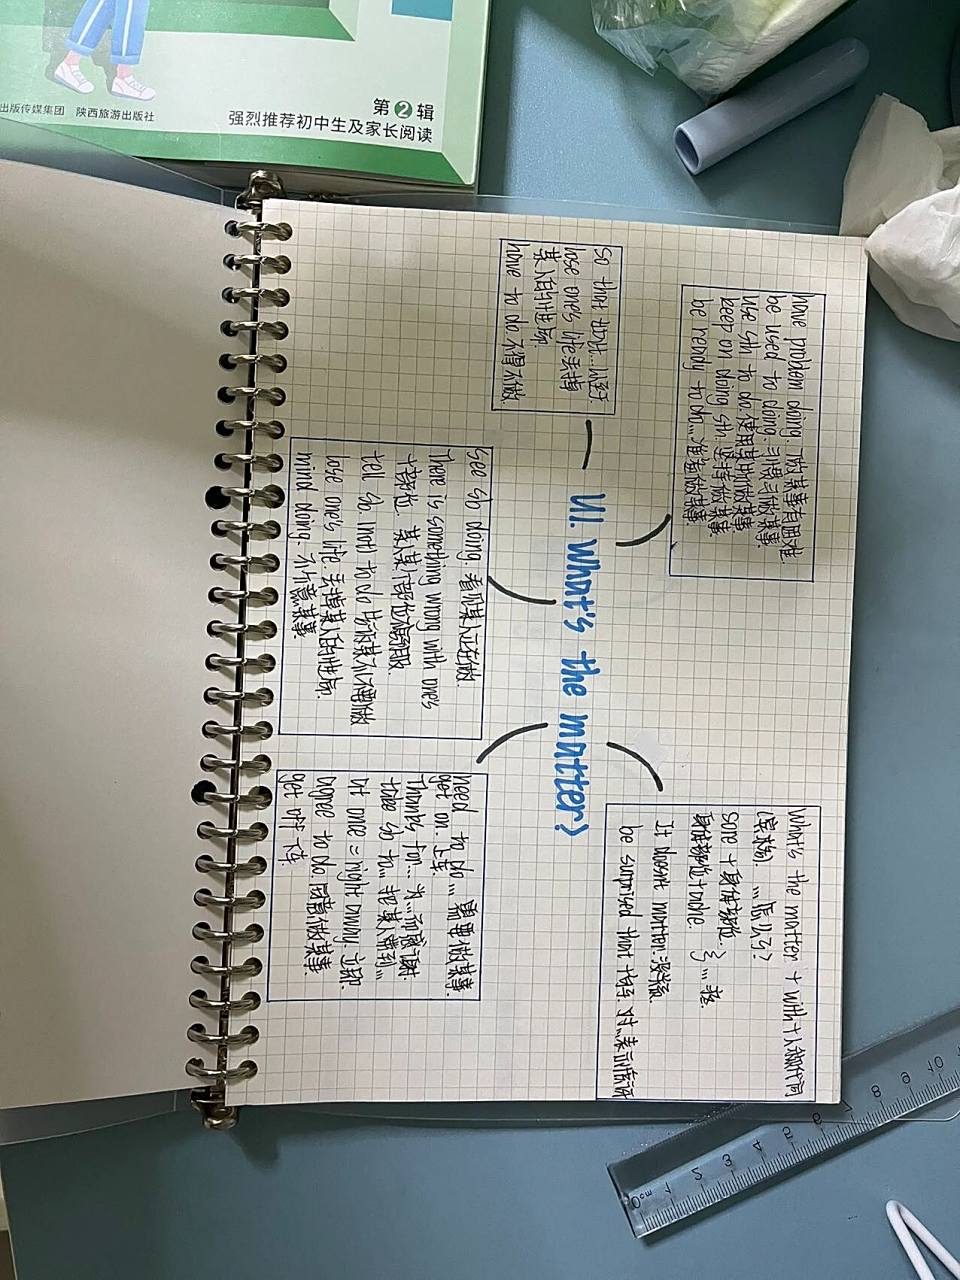 第2辑
强烈推荐初中生及家长阅读
出版传媒集团 陕西旅游出版社
U1. What's the matter?
have problem doing. 做某事有困难.
be used to doing. 习惯于做某事.
use sth to do. 使用某物做某事.
keep on doing sth. 坚持做某事.
be ready to do... 准备做某事.
so that 以致... 以至于.
lose one's life 失掉
某人的性命.
have to do 不得不做.
see sb doing. 看见某人正在做.
There is something wrong with one's
+部位. 某人某个部位
tell sb. not to do 告诉某人不要做
lose one's life 失掉某人的性命.
mind doing. 介意某事.
What's the matter + with + 人称代词
(宾格). ...怎么了?
sore + 身体部位.
身体部位+ache. 了...疼.
It doesn't matter. 没关系.
be surprised that 句子. 对...表示惊讶
need to do... 需要做某事.
get on. 上车.
Thanks for... 为...而感谢.
take sb to... 把某人带到...
at once = right away. 立即.
agree to do 同意做某事.
get off 下车
0cm 1 2 3 4 5 6 7 8 9 10